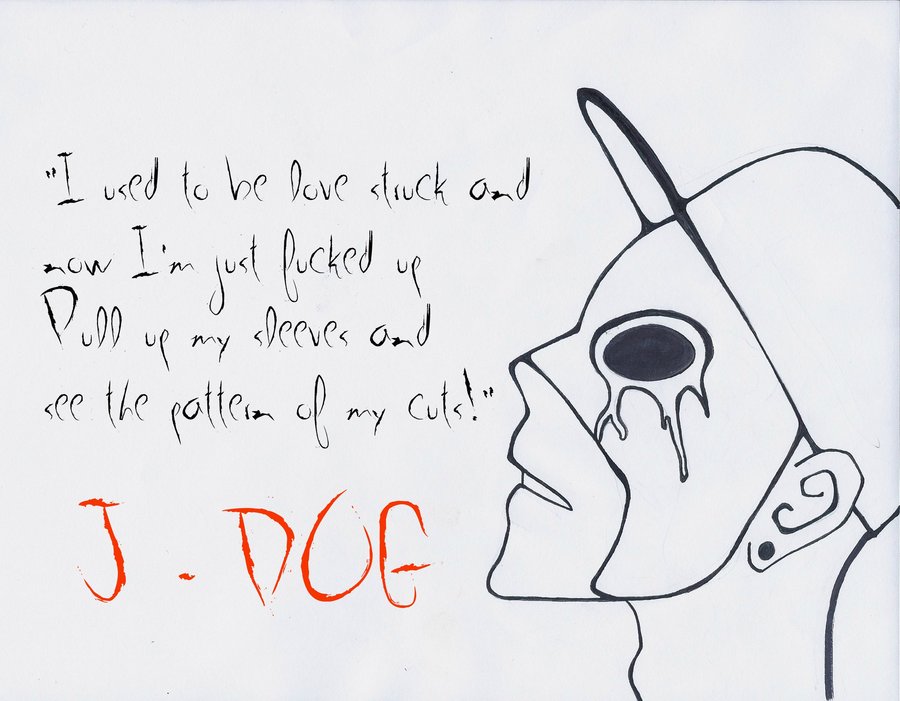 "I used to be love struck and
now I'm just fucked up
Pull up my sleeves and
see the pattern of my cuts!"
J. DOE